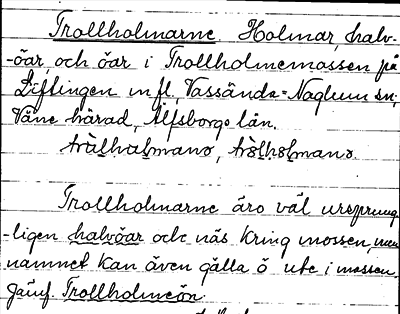 Trollholmarne Holmar, halv-
-öar, och öar i Trollholmemossen på
m. fl., Vassända-Naglum sn,
Väne härad, Älfsborgs län.
Trollholmarne äro väl ursprung-
-ligen halvöar och näs kring mossen, men
namnet kan även gälla ö ute i mossen.
Jämf. Trollholmeön